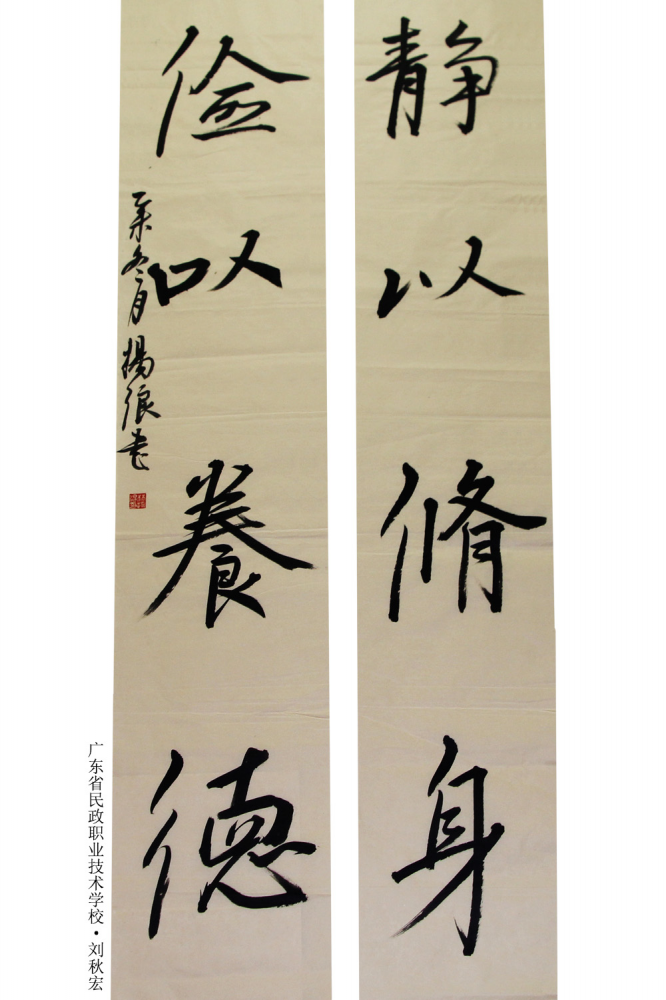 静以脩身
儉以養德
冬月
书
广东省民政职业技术学校·刘秋宏